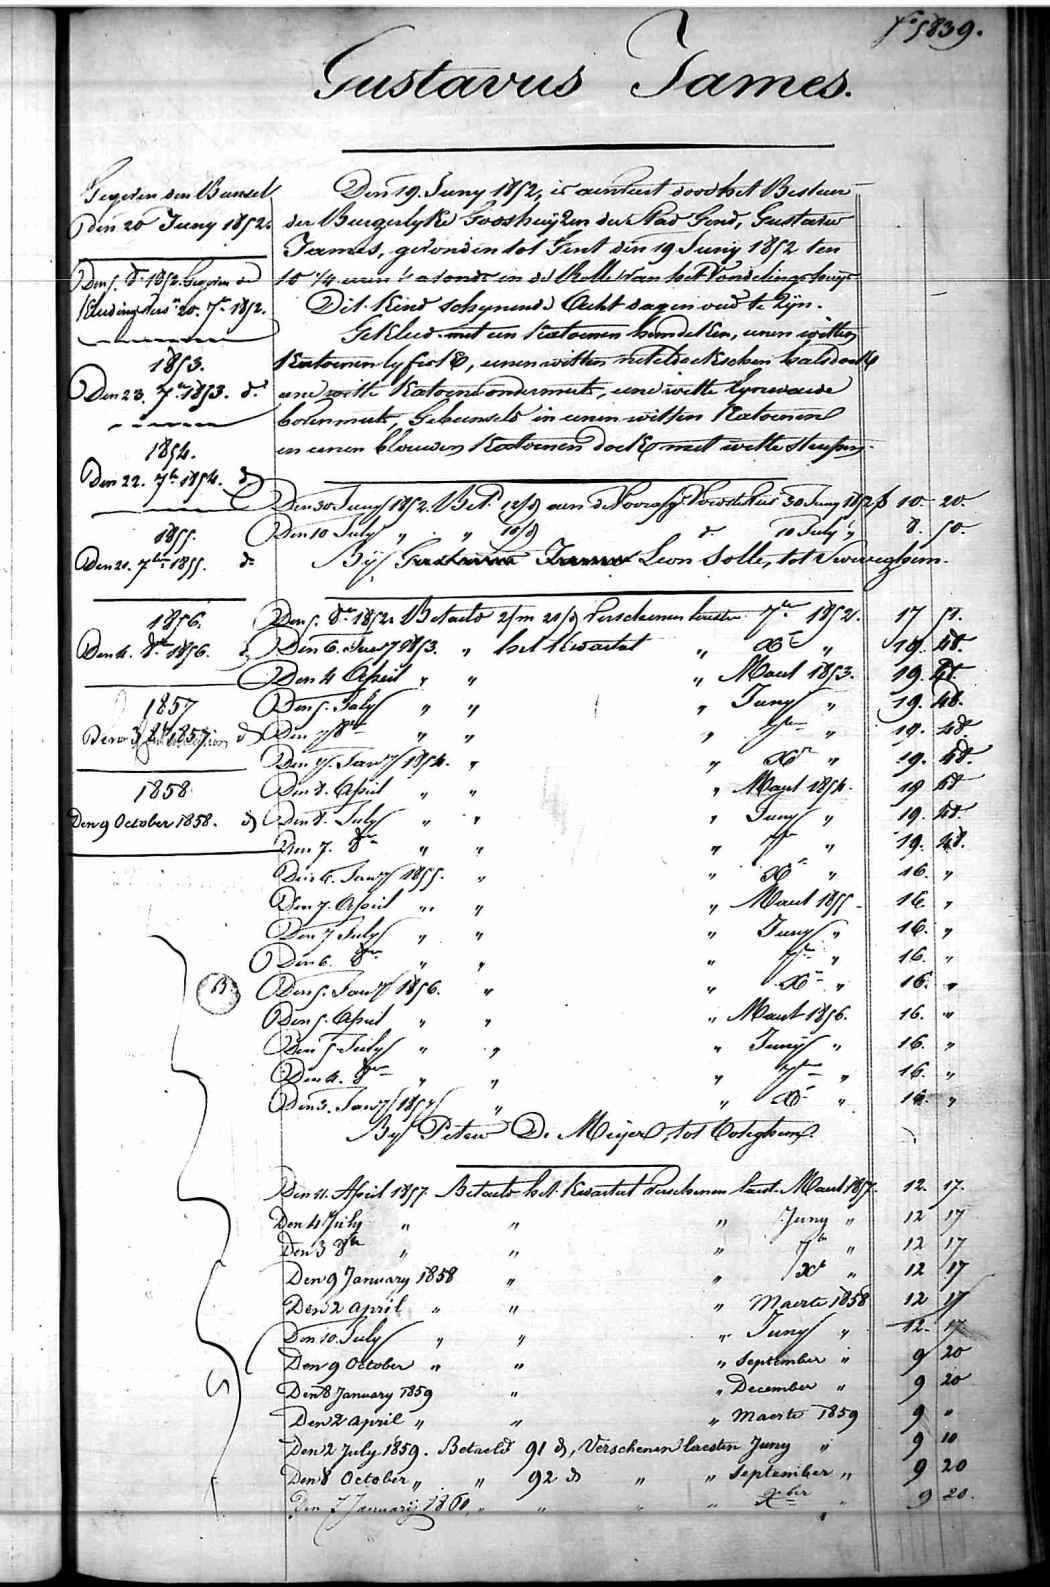 fo 5839.
Gustavus James.
Gegeven den Bunsel
Den 20 Juny 1852.
Den 5. 8r. 1852. Gegeven de
Kleeding 20. 7r 1852.
1853.
Den 23. 7r 1853. do
1854.
Den 22. 7br 1854. do
1855.
Den 21. 7ber 1855. do
1856.
Den 4. 8r 1856. do
1857
Den 3 8br 1857 do
1858
Den 9 October 1858. do
Den 19. Juny 1852, is aenveert door het Bestuer
der Burgerlyke Godshuyzen der Stad Gend, Gustavus
James, gevonden tot Gent den 19 Juny 1852 ten
10 1/4 uren 's avonds in de Rolle van het Vondelingshuys
Dit Kind schynende Acht dagen oud te zyn.
Gekleed met een Katoenen hemdeken, eenen witten
Katoenen lyfrok, eenen witten neteldoekschen halsdoek,
eene witte Katoene ondermuts, eene witte lynwaede
bovenmuts, Gebunseld in eenen witten Katoenen
en eenen blauwen Katoenen doek met witte
Den 30 Juny 1852. Bet. 12/d aen de Voorzg. Voedster 30 Juny 1852 f 10. 20.
Den 10 July " " 10/d do 10 July " 8. 50.
By Gustavus James Leon Solle, tot Sweveghem.
Den 5. 8r 1852. Betaeld 2/m 21/d Verschenen laesten 7r 1852. 17 51.
Den 6. Jany 1853. " het Kwartael " Xr " 19. 48.
Den 4 April " " " Maert 1853. 19. 48.
Den 5. July " " " Juny " 19. 48.
Den 7 8br " " " 7br " 19. 48.
Den 7. Jany 1854. " " Xr " 19. 48.
Den 8. April " " " Maert 1854. 19 48
Den 8. July " " " Juny " 19. 48.
Den 7. 8r " " " 7r " 19. 48.
Den 6. Jany 1855. " " Xr " 16. "
Den 7. April " " " Maert 1855 16 "
Den 7 July " " " Juny " 16. "
Den 6. 8r " " " 7r " 16. "
Den 5. Jany 1856. " " Xr " 16. "
Den 5. April " " " Maert 1856. 16. "
Den 5 July " " " Juny " 16. "
Den 4. 8r " " " 7r " 16. "
Den 3. Jany 1857 " " Xr " 16. "
By Pieter De Meyer, totOoteghem.
Den 11. April 1857. Betaeld het Kwartael Verschenen laest. Maert 1857. 12. 17.
Den 4 July " " " Juny " 12 17
Den 3 8br " " " 7r " 12 17
Den 9 January 1858 " " Xr " 12 17
Den 2 April " " " Maerte 1858 12 17
Den 10. July " " " Juny " 12. 17
Den 9 October " " " September " 9 20
Den 8 January 1859 " " December " 9 20
Den 2 April " " " Maerte 1859 9 "
Den 2 July 1859. Betaeld 91 d, Verschenen laesten Juny " 9 10
Den 8 October " " 92 d " " September " 9 20
Den 7 January 1860, " " " " Xber " 9 20.